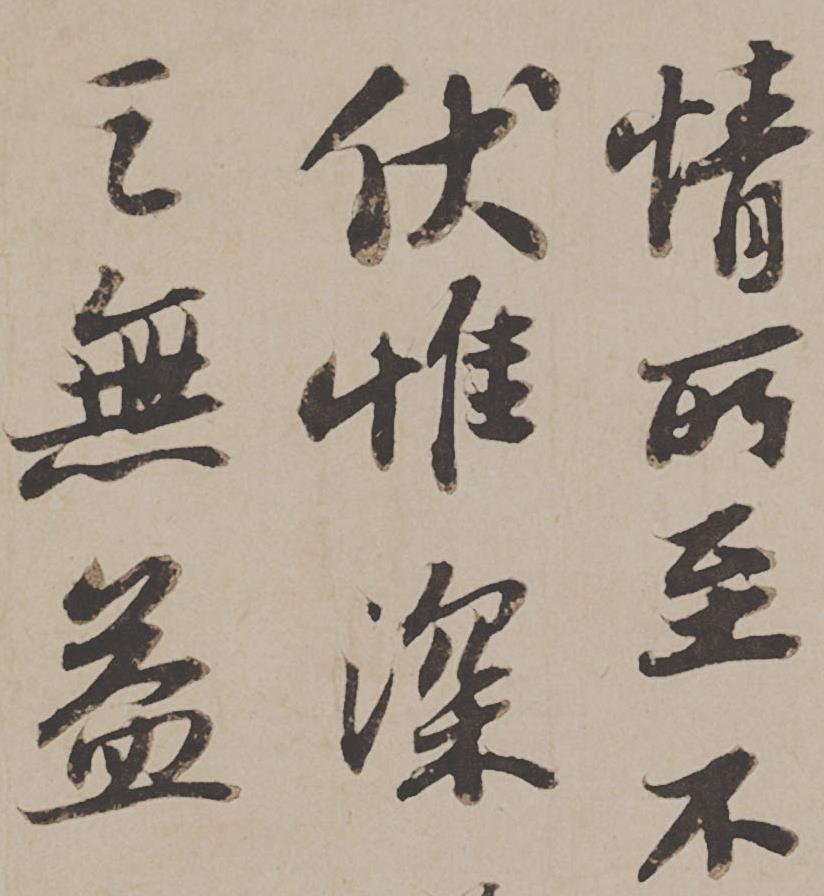 情所至不
伏惟深
之無益